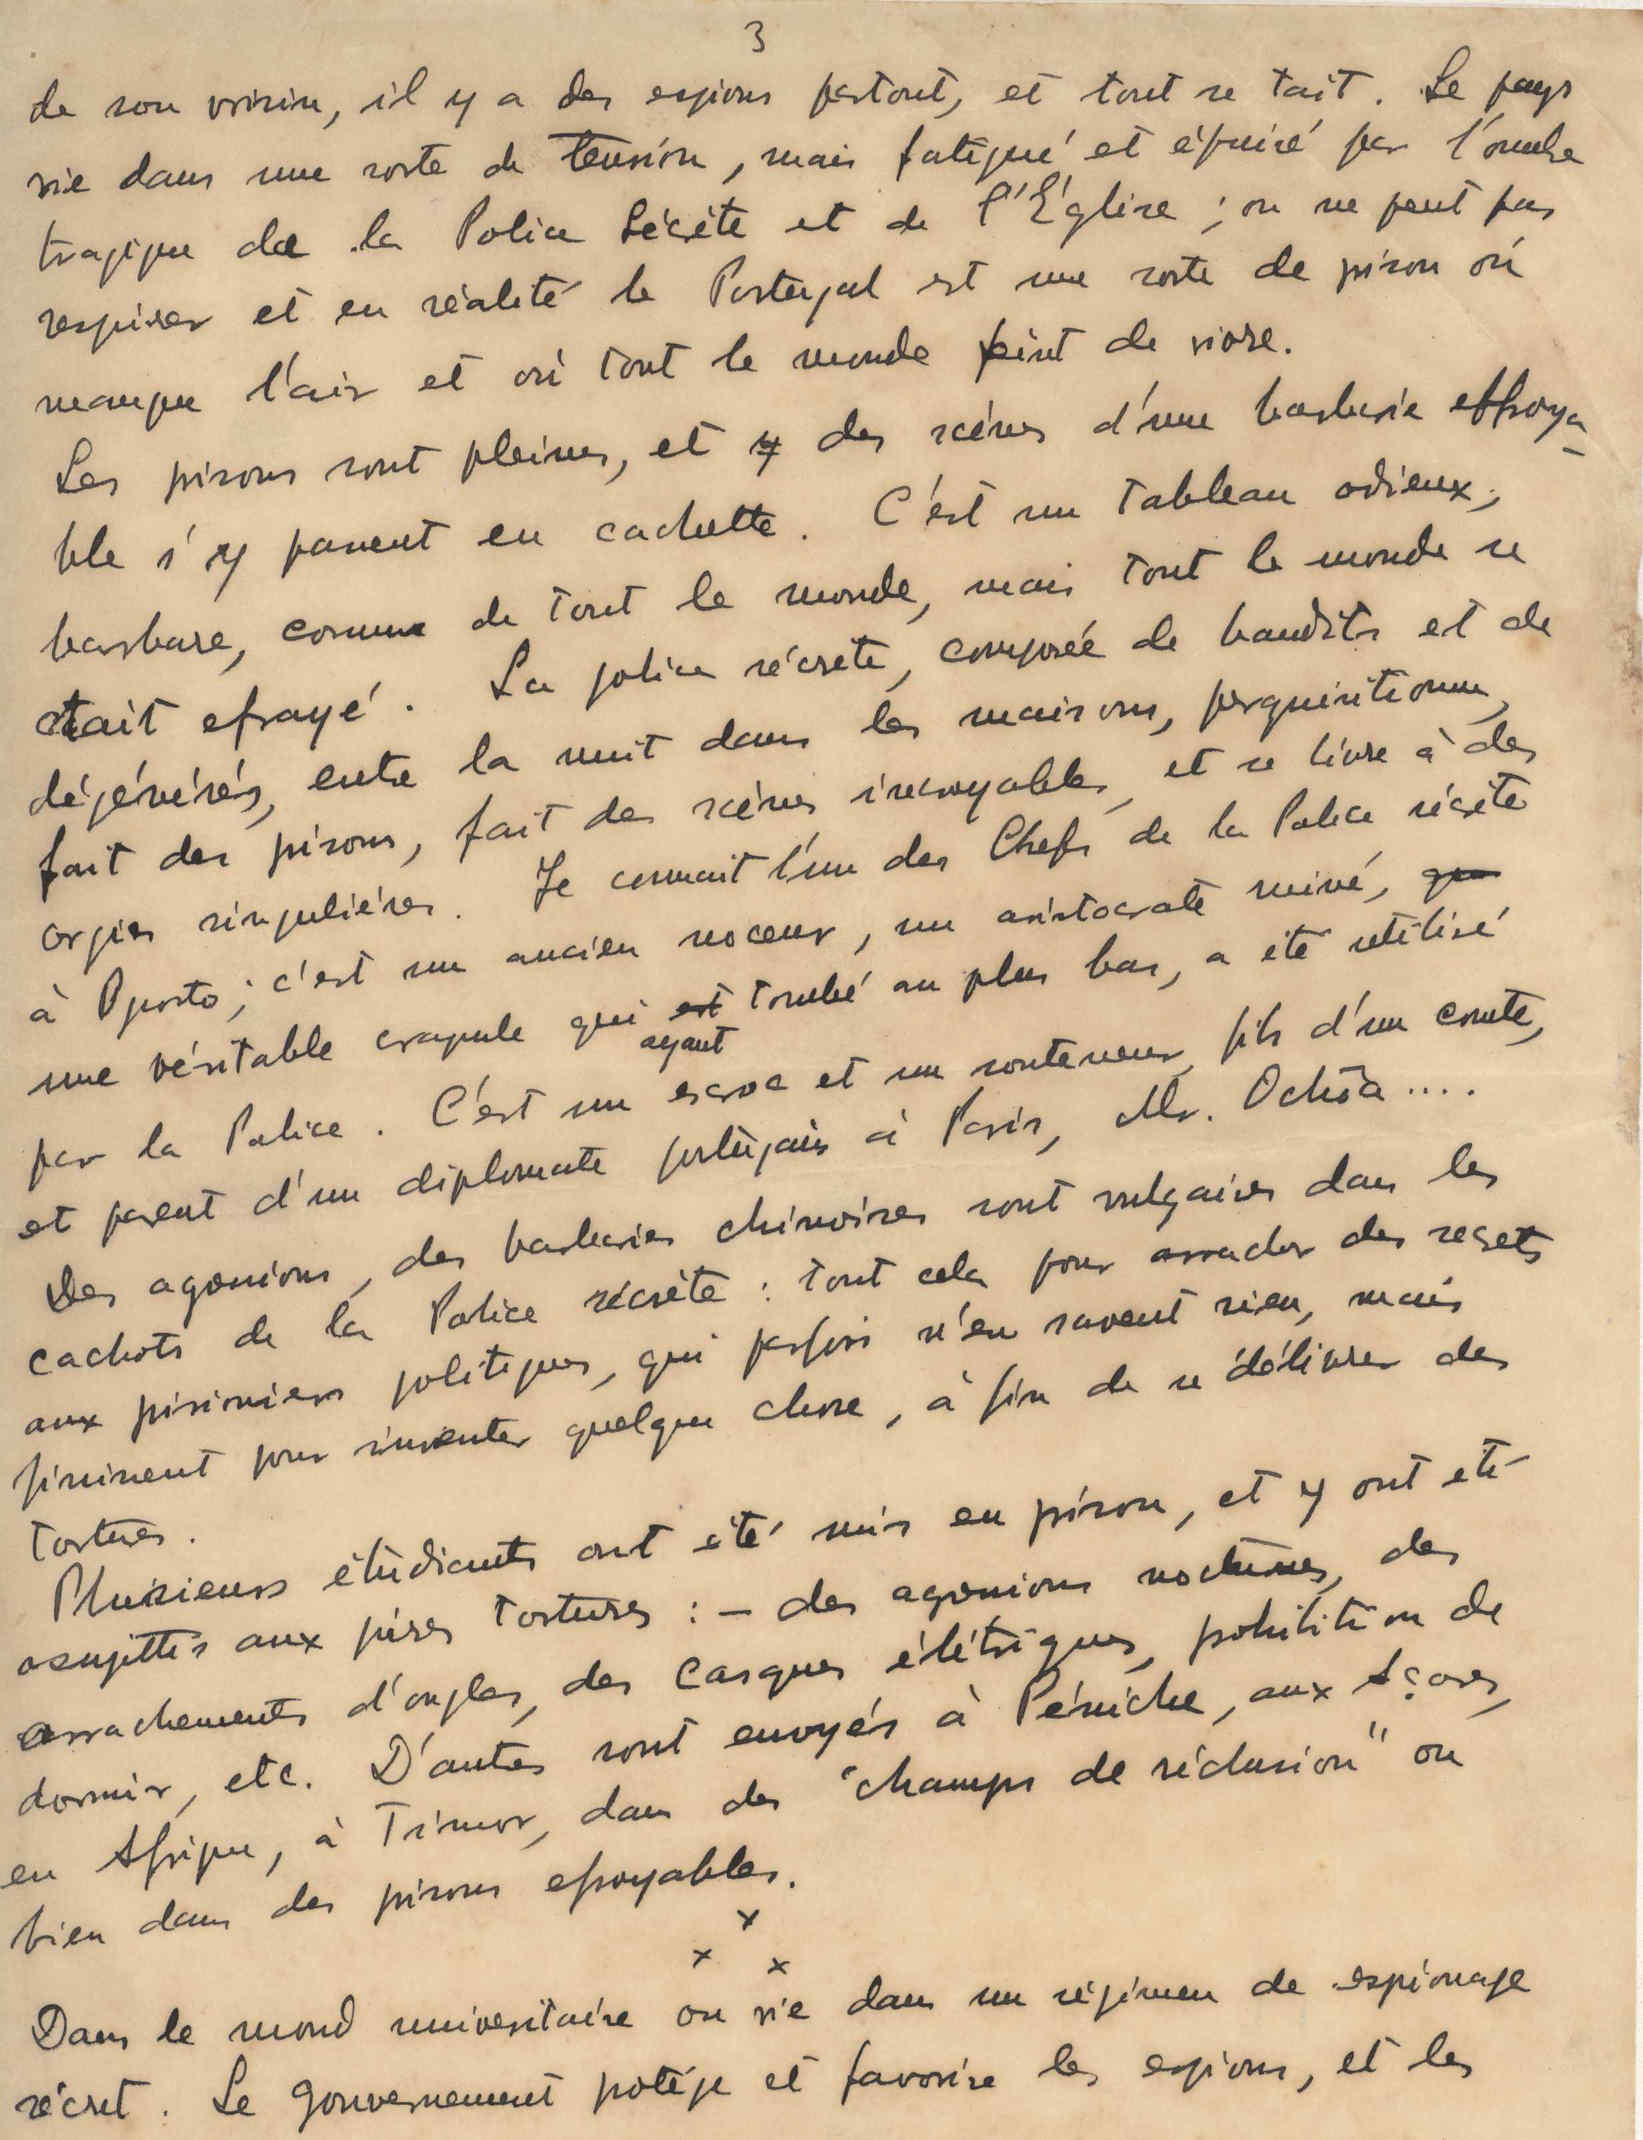 3
de son voisin, il y a des espions partout, et tout se tait. Le pays
vie dans une sorte de tension, mais fatigué et épuisé par l'ombre
tragique de la Police Sécrète et de l'Église ; on ne peut pas
respirer et en réalité le Portugal est une sorte de prison où
manque l'air et où tout le monde feint de vivre.
Les prisons sont pleines, et des scènes d'une barbarie effroya-
ble s'y passent en cachette. C'est un tableau odieux,
barbare, connu de tout le monde, mais tout le monde se
tait efrayé. La police sécrète, composée de bandits et de
dégénérés, entre la nuit dans les maisons, perquisitionne,
fait des prisons, fait des scènes incroyables, et se livre à des
orgies singulières. Je connait l'un des Chefs de la Police sécrète
à Oporto ; c'est un ancien noceur, un aristocrate ruiné, que
une véritable crapule qui est tombé au plus bas, a été utilisé
ayant
par la Police. C'est un escroc et un souteneur, fils d'un comte,
et parent d'un diplomate portugais à Paris, Mr. Ochôa ....
Des agressions, des barbaries chinoises sont vulgaires dans les
cachots de la Police sécrète : tout cela pour arracher des secrets
aux prisioniers politiques, qui parfois n'en savent rien, mais
finissent pour inventer quelque chose, à fin de se délivrer des
tortures.
Plusieurs étudiants ont été mis en prison, et y ont été
assujettis aux pires tortures : – des agressions nocturnes, des
arrachements d'ongles, des casques élétriques, prohibition de
dormir, etc. D'autres sont envoyés à Péniche, aux Açores,
en Afrique, à Timor, dans des "champs de réclusion" ou
bien dans des prisons efroyables.
x
x x
Dans le mond universitaire on vie dans un régimen de espionage
sécret. Le gouvernement protége et favorise les espions, et les